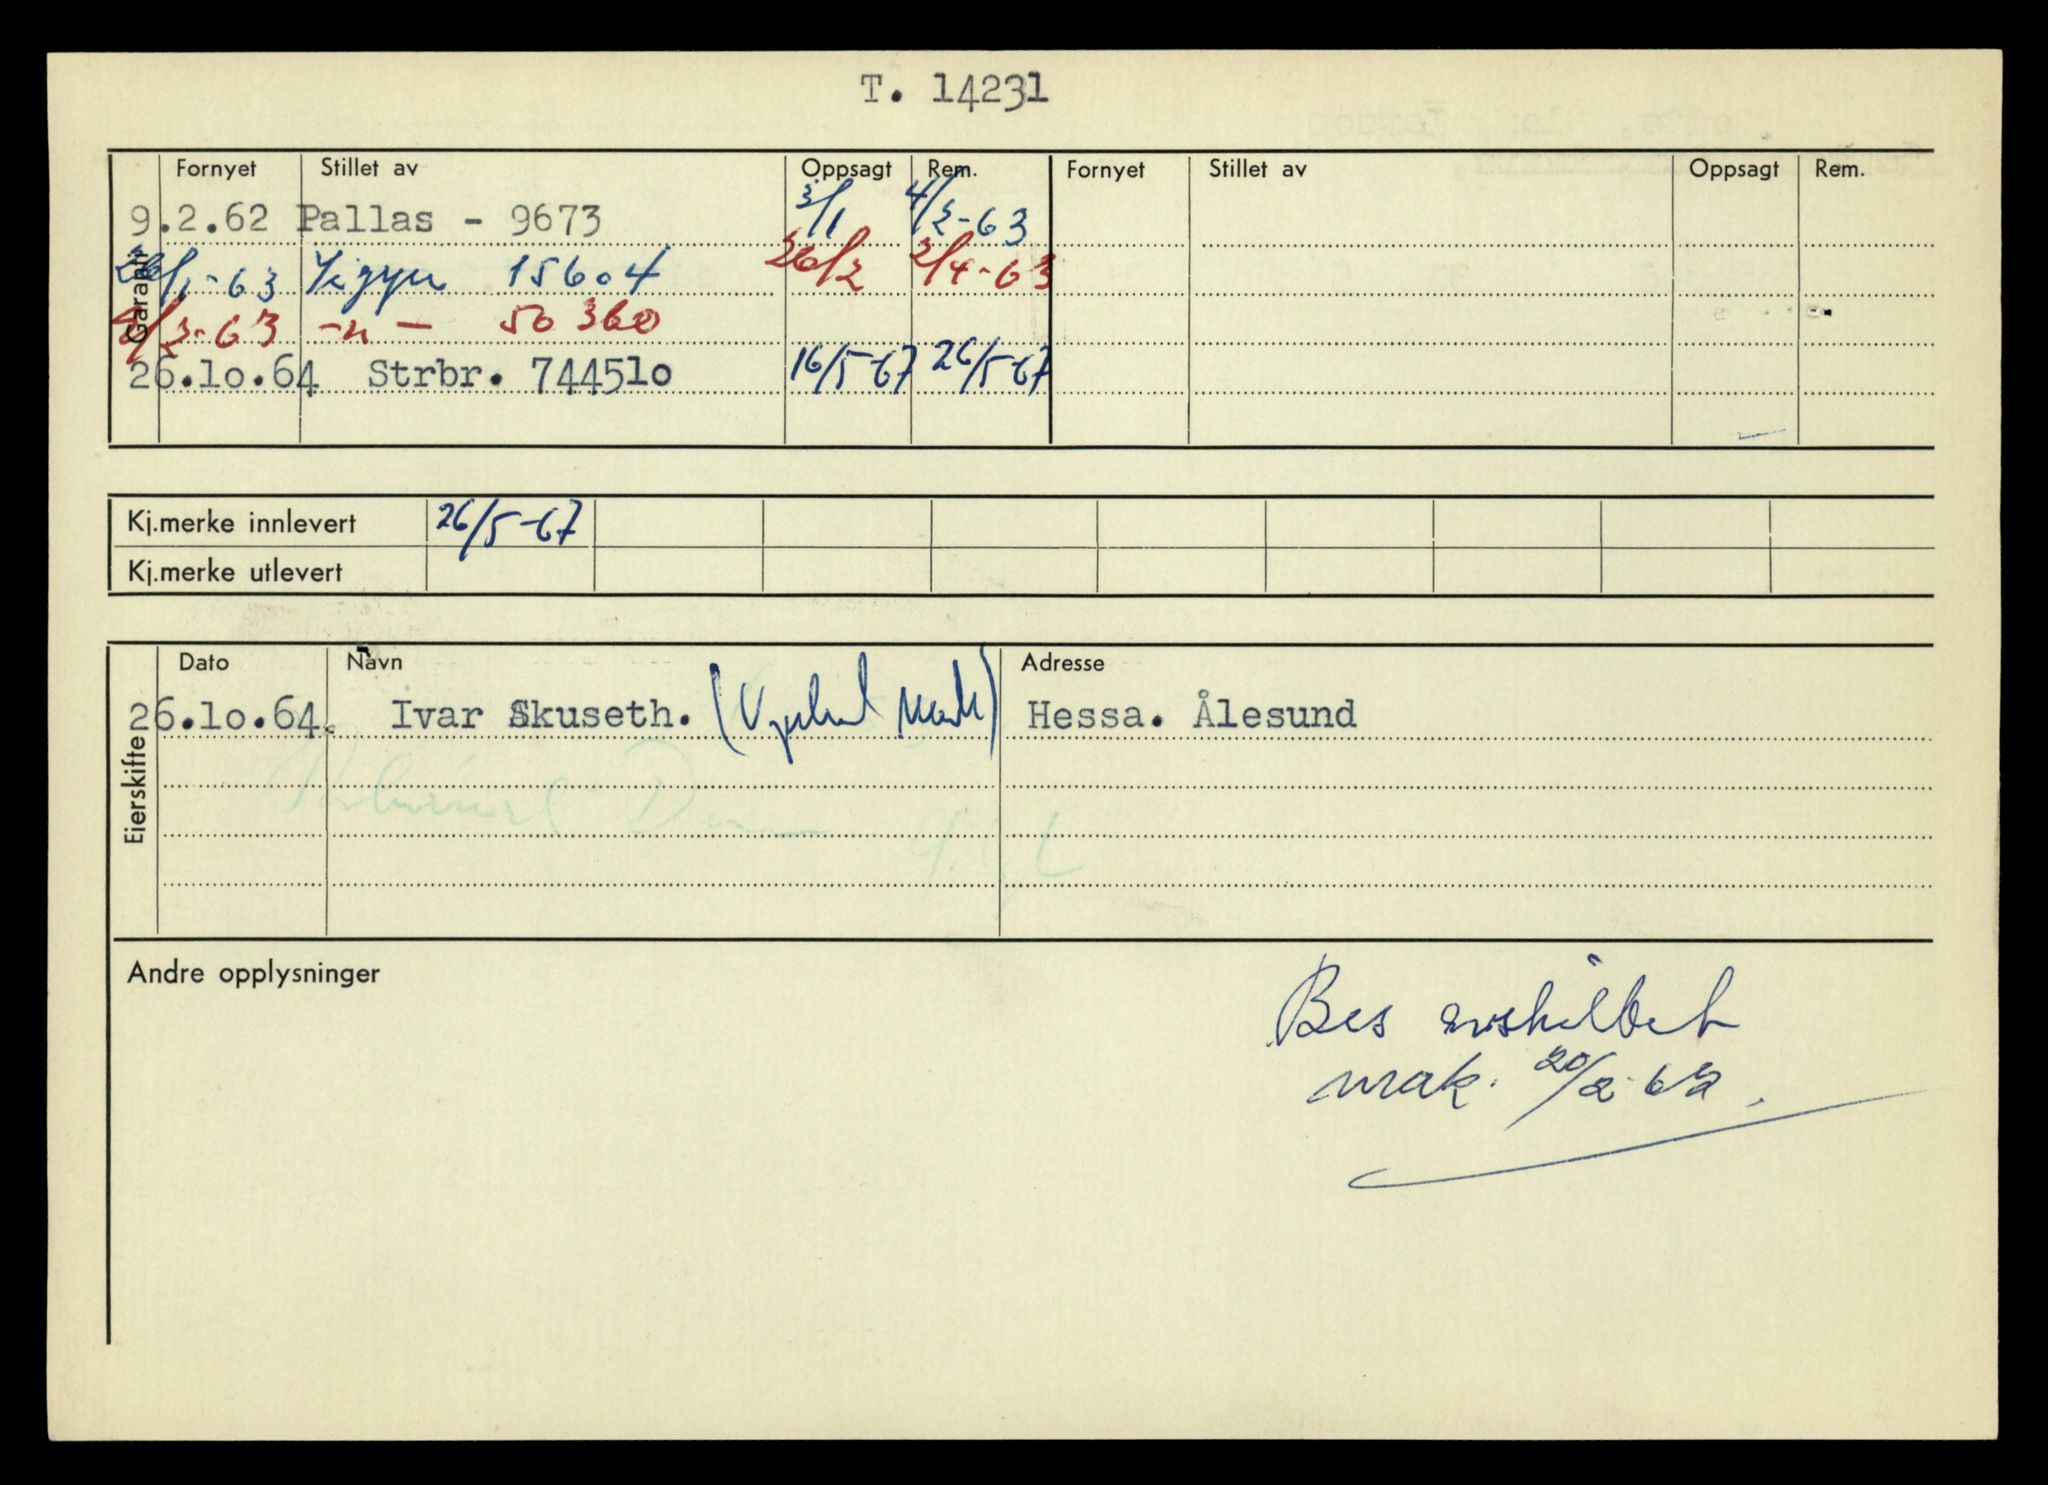 T. 14231
Fornyet Stillet av Oppsagt Rem. Fornyet Stillet av Oppsagt Rem.
Garanti
9.2.62 Pallas - 9673 3/1 4/2-63
26/1-63 15604 26/2 2/4-63
-"- 50360
26.10.64 Strbr. 744510 16/5-67 26/5-67
Kj.merke innlevert 26/5-67
Kj.merke utlevert
Eierskifte
Dato Navn Adresse
26.10.64. Ivar Skuseth. Hessa. Ålesund
Andre opplysninger
Bes avskiltet